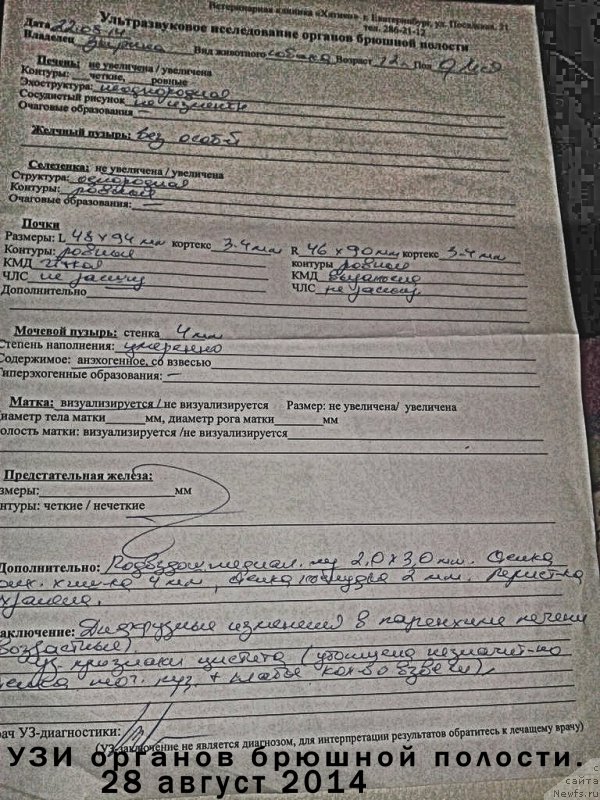 Ветеринарная клиника «Хатико», г. Екатеринбург, ул. Посадская, 21
тел. 286-21-12
Ультразвуковое исследование органов брюшной полости
Дата
Владелец Вид животного собака Возраст 12л Пол
Печень: не увеличена / увеличена
Контуры: четкие, ровные
Эхоструктура: неоднородная
Сосудистый рисунок не изменен
Очаговые образования –
Желчный пузырь: без особ-й
Селезенка: не увеличена / увеличена
Структура: однородная
Контуры: ровные
Очаговые образования: –
Почки
Размеры: L 48 х 94 мм кортекс 3-4 мм R 46 х 90 мм кортекс 3-4 мм
Контуры: ровные контуры ровные
КМД КМД
ЧЛС не расшир ЧЛС не расшир
Дополнительно
Мочевой пузырь: стенка 4 мм
Степень наполнения: умеренно
Содержимое: анэхогенное, со взвесью
Гиперэхогенные образования: –
Матка: визуализируется / не визуализируется Размер: не увеличена/ увеличена
диаметр тела матки мм, диаметр рога матки мм
полость матки: визуализируется /не визуализируется
Предстательная железа:
змеры: мм
нтуры: четкие / нечеткие
Дополнительно: Подвздош. медиал. лу 2,0 х 3,0 мм. Стенка
4 мм, стенка желудка 2 мм. Перист-ка
аключение: Диффузные изменения в паренхиме печени
(возрастные)
УЗ признаки цистита (утолщена незначит-но
стенка моч. пуз. + кол-во взвеси)
рач УЗ-диагностики:
(УЗ-заключение не является диагнозом, для интерпретации результатов обратитесь к лечащему врачу)
УЗИ органов брюшной полости.
28 август 2014
с
сайта
Newfs.ru